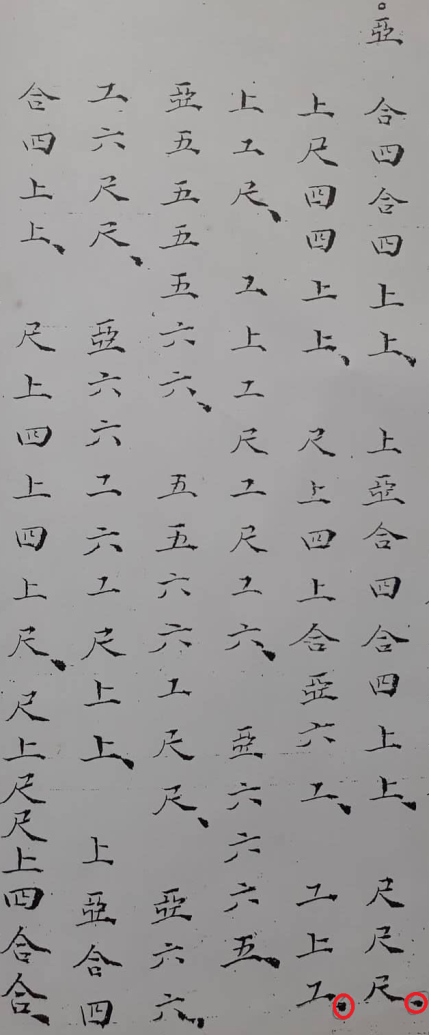 亞 合四合四上上、 上亞合四合四上上、 尺尺尺、
上尺四四上上、 尺上四上合亞六工、 工上工、
上工尺、 工上工尺工尺工六、 亞六六六五、
亞五五五五六六、 五五六六工尺尺、 亞六六
工六尺尺、 亞六六工六工尺上上、 上亞合四
合四上上、 尺上四上四上尺、 尺上尺尺上四合合、